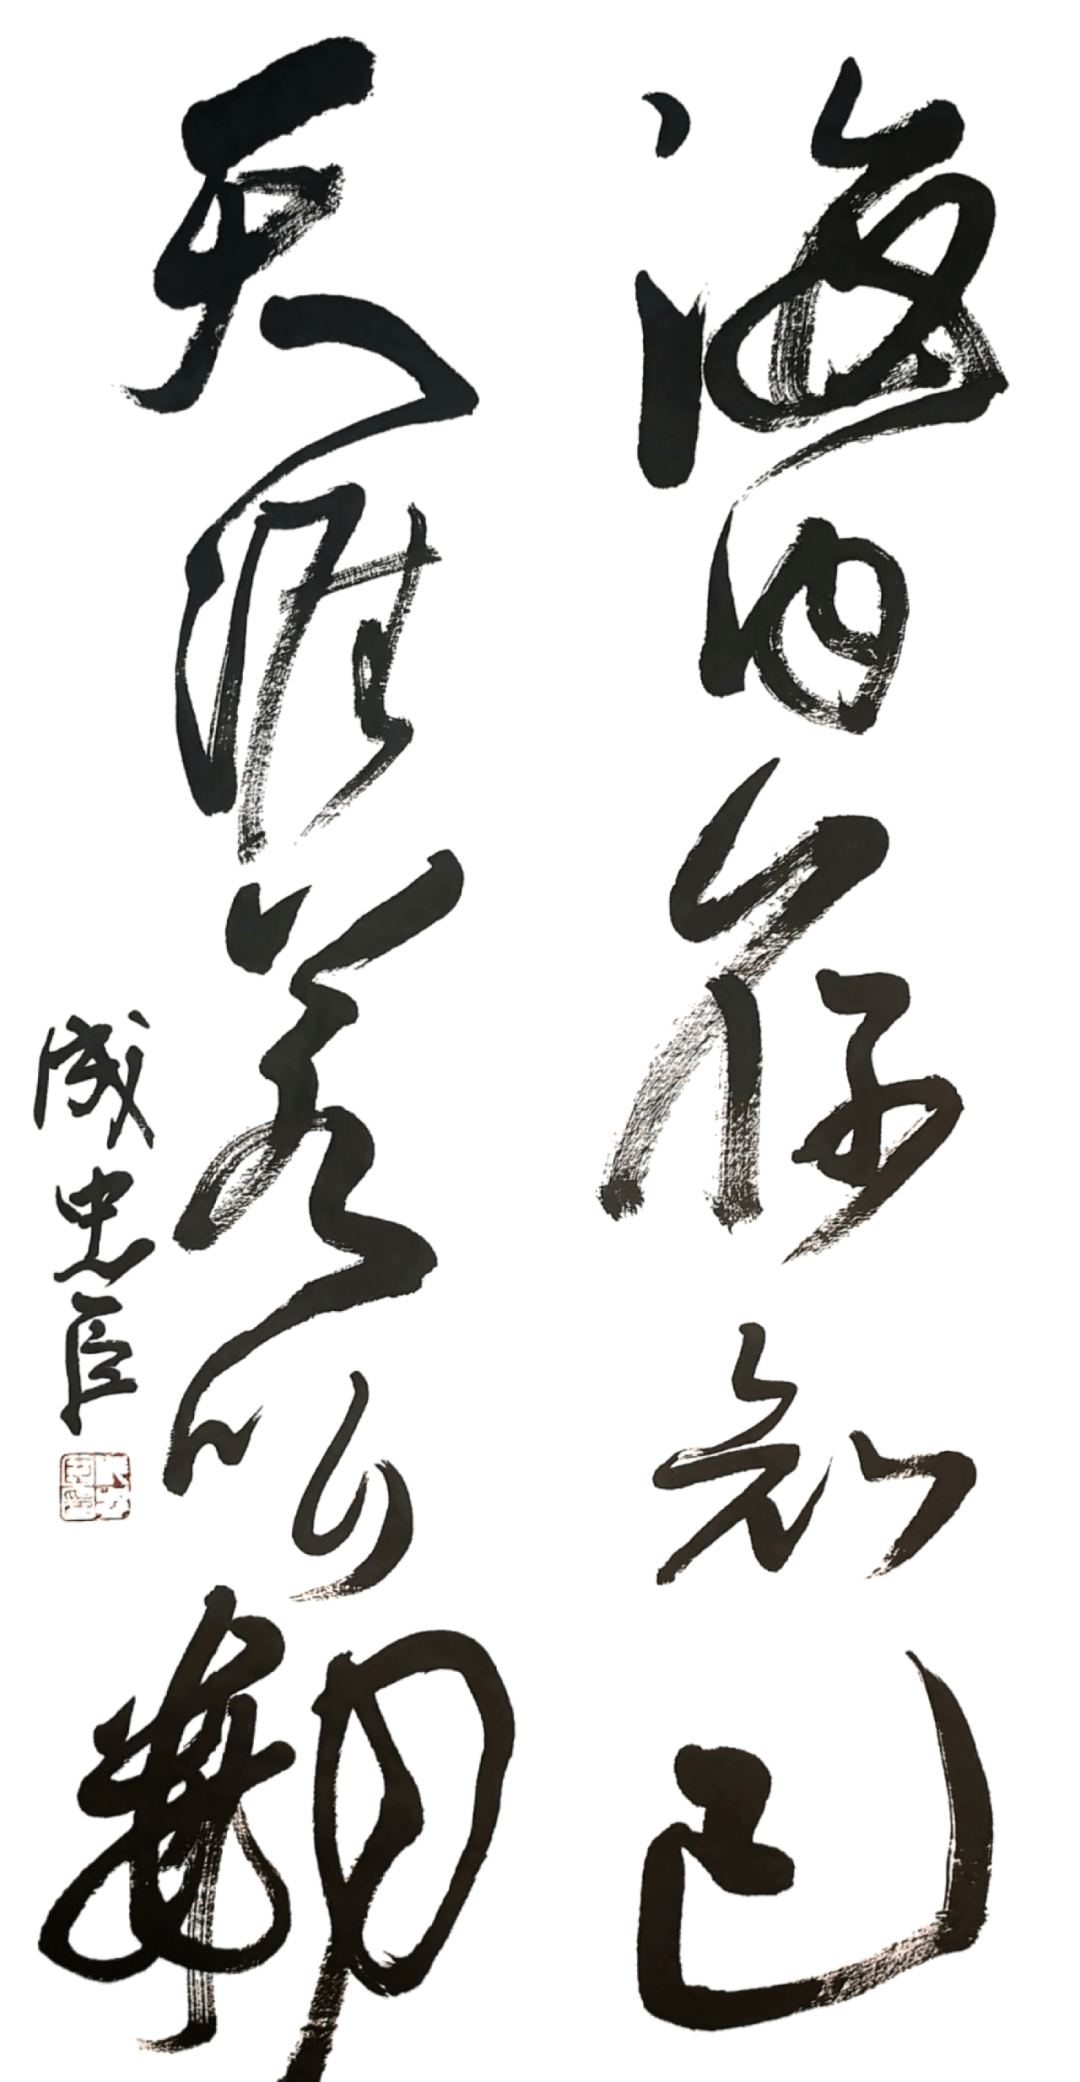 海内存知己
天涯若比鄰
成忠臣